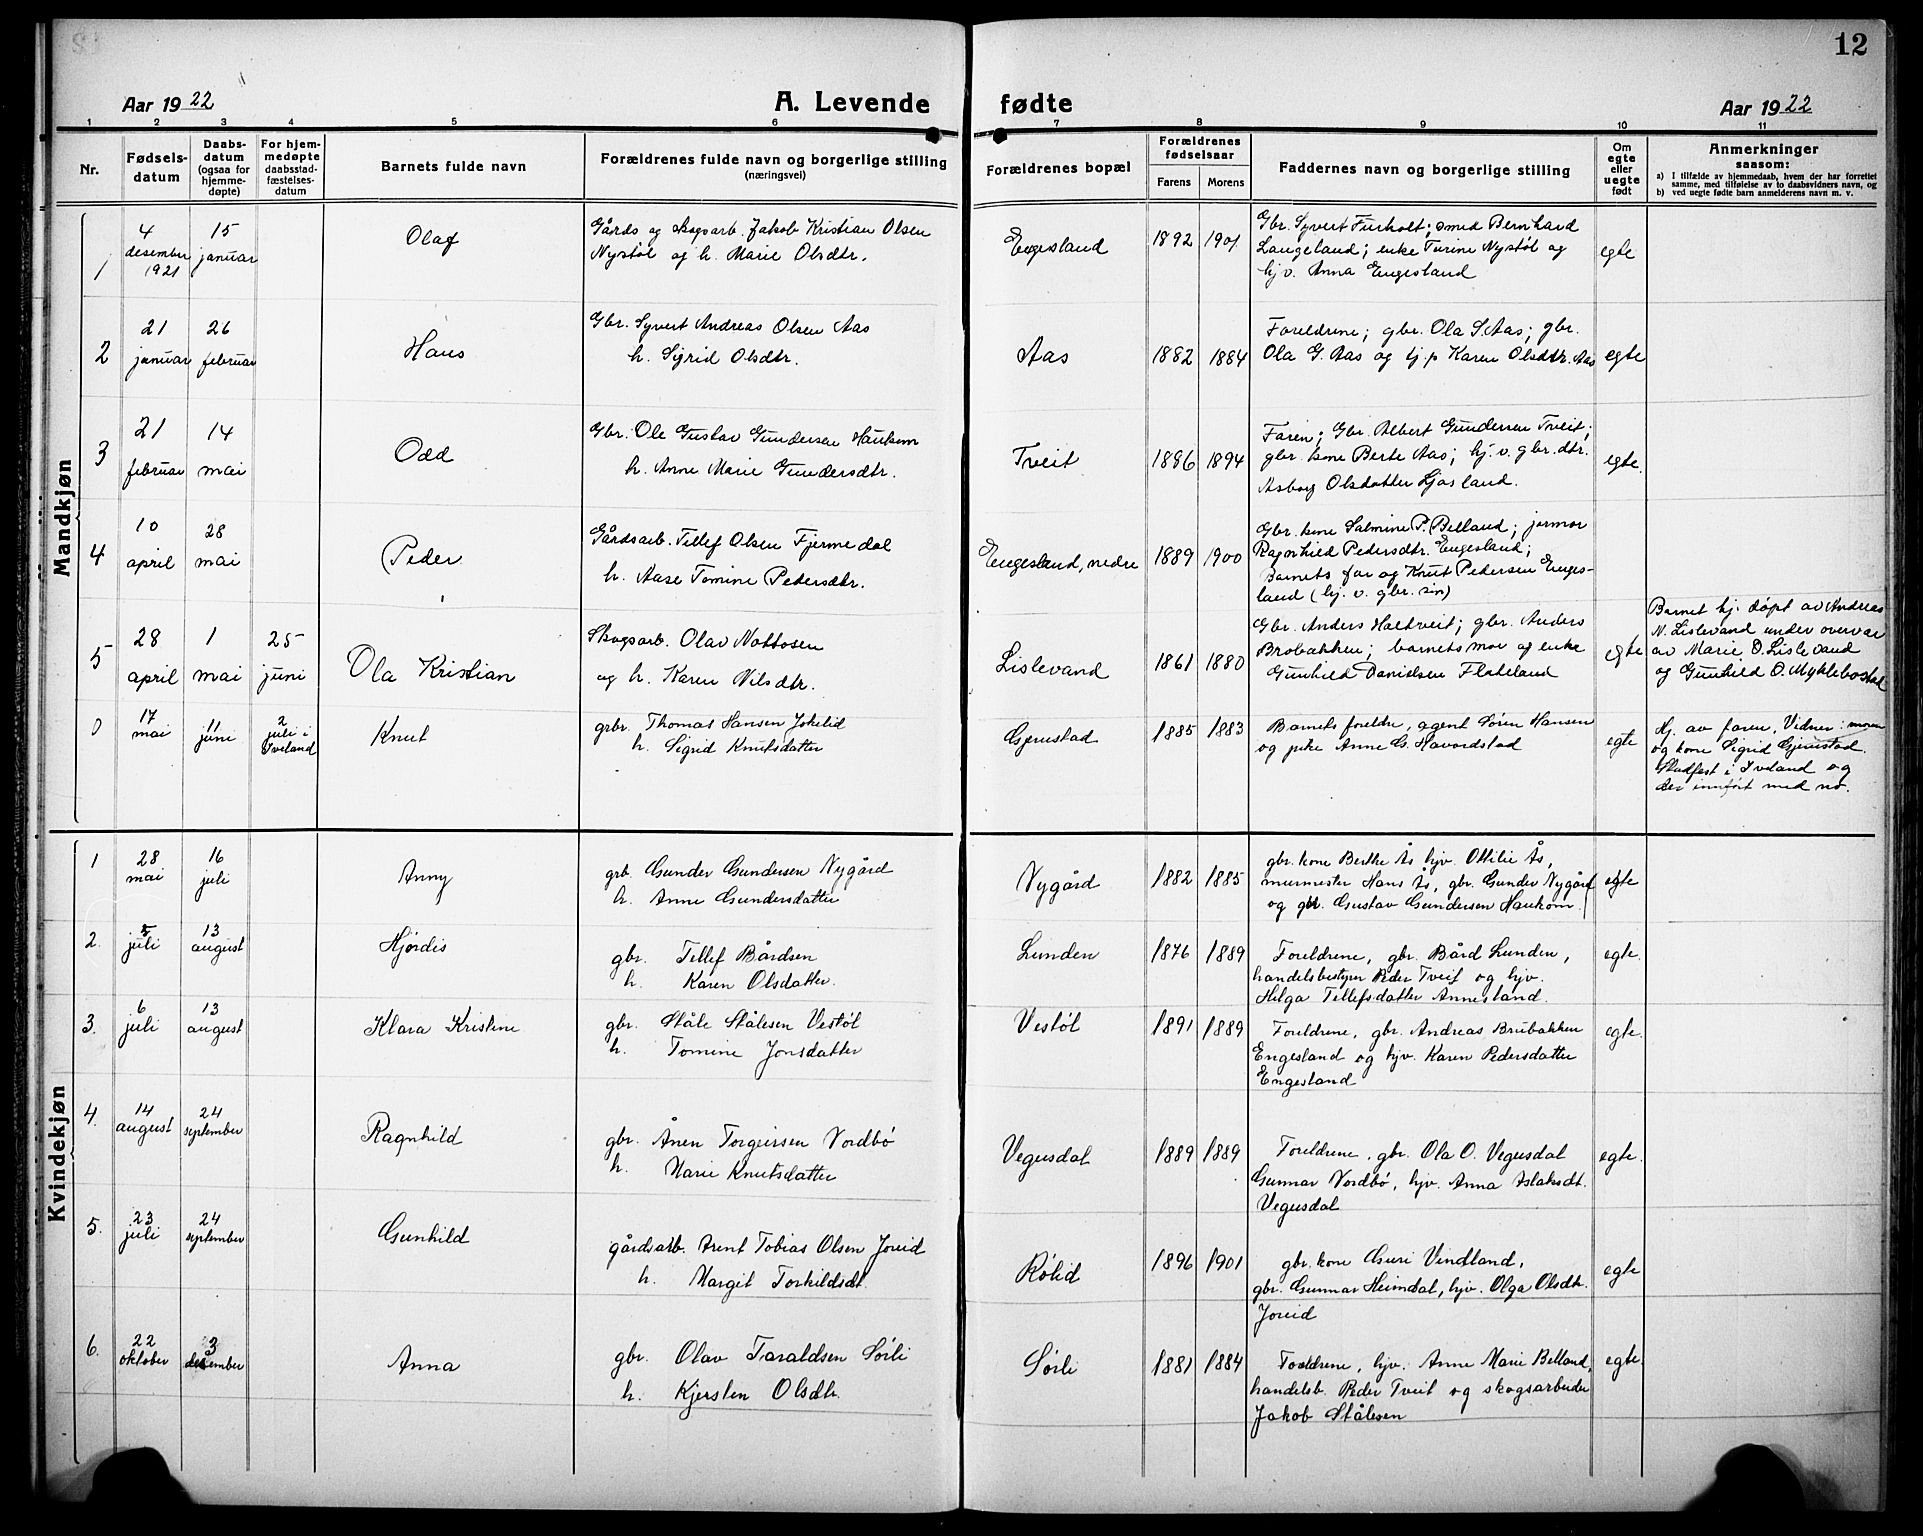 12
Aar 1922
A. Levende fødte
Aar 1922
1 2 3 4 5 6 7 8 9 10 11
Nr.
Fødsels-
datum
Daabs-
datum
(ogsaa for
hjemme-
døpte)
For hjem-
medøpte
daabsstad-
fæstelses-
datum
Barnets fulde navn
Forældrenes fulde navn og borgerlige stilling
(næringsvei)
Forældrenes bopæl
Forældrenes
fødselsaar
Farens Morens
Faddernes navn og borgerlige stilling
Om
egte
eller
uegte
født
Anmerkninger
saasom:
a) I tilfælde av hjemmedaab, hvem der har forrettet
samme, med tilføielse av to daabsvidners navn, og
b) ved uegte fødte barn anmelderens navn m. v.
Mandkjøn
1
4
desember
1921
15
januar
Olaf
Gårds og skogsarb. Jakob Kristian Olsen
Nystøl og h. Marie Olsdtr.
Engesland
1892 1901
Gbr. Syvert Furholt; smed Bernhard
Langeland; enke Turine Nystøl og
hjv. Anna Engesland
egte
2
21
januar
26
februar
Hans
Gbr. Syvert Andreas Olsen Aas
h. Sigrid Olsdtr.
Aas
1882 1884
Foreldrene; gbr. Ola S. Aas; gbr.
Ola G. Aas og hj. p Karen Olsdtr. Aas
egte
3
21
februar
14
mai
Odd
Gbr. Ole Gustav Gundersen Haukom
h. Anne Marie Gundersdtr.
Tveit
1896 1894
Faren; Gbr. Albert Gundersen Tveit;
gbr. kone Berte Aas; hj. v. gbr. dtr.
Asborg Olsdatter Ljosland.
egte.
4
10
april
28
mai
Peder
Gårdsarb. Tellef Olsen Fjermedal
h. Aase Tomine Pedersdtr.
Engesland, nedre
1889 1900
Gbr. kone Salmine P. Belland; jormor
Ragnhild Pedersdtr. Engesland;
Barnets far og Knut Pedersen Enges-
land (hj. v. gbr. søn)
5
28
april
1
mai
25
juni
Ola Kristian
Skogsarb. Olav Nottosen
og h. Karen Nilsdtr.
Lislevand
1861 1880
Gbr. Anders Haltveit; gbr. Anders
Brobakken; barnets mor og enke
Gunhild Danielsen Flateland
egte
Barnet hj. døpt av Andreas
N. Lislevand under overvær
av Marie O. Lislevand
og Gunhild O. Myklebostad
0
17
mai
11
juni
2
juli i
Iveland
Knut
grbr. Thomas Hansen Iskelid
h. Sigrid Knutsdatter
Gjerustad
1885 1883
Barnets foreldre, agent Søren Hansen
og pike Anne G. Havordstad
egte
Hj. av faren, Vidner: moren
og kone Sigrid Gjerustad.
Stadfest i Iveland og
der innført med no.
Kvindekjøn
1
28
mai
16
juli
Anny
grb. Gunder Gundersen Nygård
h. Anne Gundersdatter
Nygård
1882 1885
gbr. kone Berthe Ås hjv. Ottilie Ås,
murmester Hans Ås, gbr. Gunder Nygård
og gbr. Gustav Gundersen Haukom.
egte
2.
5
juli
13
august
Hjørdis
gbr. Tellef Bårdsen
h. Karen Olsdatter.
Lunden
1876 1889
Foreldrene, gbr. Bård Lunden,
handelsbestyrer Peder Tveit og hjv.
Helga Tellefsdatter Annesland.
egte.
3.
6
juli
13
august
Klara Kristine
gbr. Ståle Stålesen Vestøl
h. Tomine Jonsdatter
Vestøl
1891 1889
Foreldrene, gbr. Andreas Brubakken
Engesland og hjv. Karen Pedersdatter
Engesland
egte.
4.
14
august
24
september
Ragnhild
gbr. Ånen Torgeirsen Nordbø
h. Marie Knutsdatter
Vegusdal
1889 1889
Foreldrene, gbr. Ola O. Vegusdal
Gunnar Nordbø, hjv. Anna Aslaksdt.
Vegusdal
egte.
5.
23
juli
24
september
Gunhild
gårdsarb. Arent Tobias Olsen Joreid
h. Margit Torkildsdt.
Rølid
1896 1901
gbr. kone Guri Vindland,
gbr. Gunnar Heimdal, hjv. Olga Olsdtr.
Joreid
egte
6.
22
oktober
3
desember
Anna
gbr. Olav Taraldsen Sørli
h. Kjersten Olsdtr.
Sørli
1881 1884
Foreldrene, hjv. Anne Marie Belland,
handelsb. Peder Tveit og skogsarbeider
Jakob Stålesen
egte.